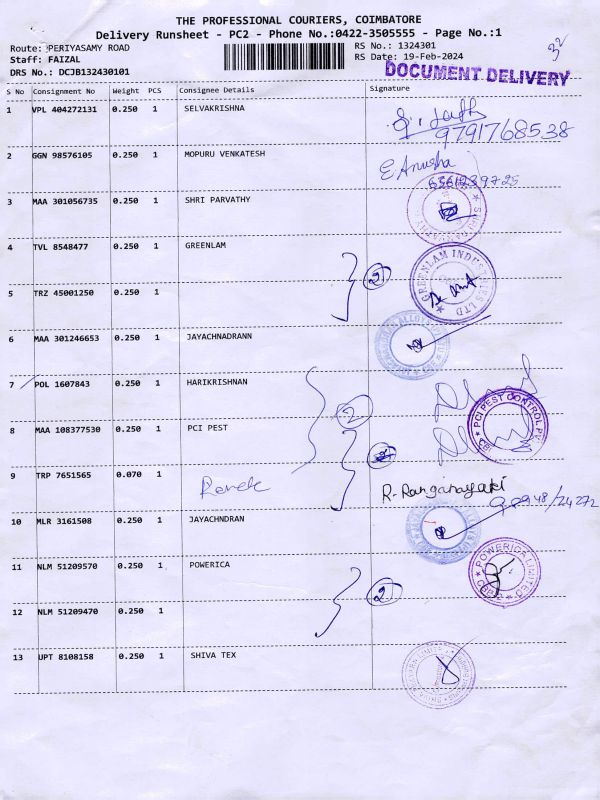 THE PROFESSIONAL COURIERS, COIMBATORE
Delivery Runsheet - PC2 - Phone No.:0422-3505555 - Page No.:1
Route: PERIYASAMY ROAD RS No.: 1324301
Staff: FAIZAL RS Date: 19-Feb-2024
DRS No.: DCJB132430101
32
DOCUMENT DELIVERY
S No Consignment No Weight PCS Consignee Details Signature
1 VPL 404272131 0.250 1 SELVAKRISHNA
9791768538
2 GGN 98576105 0.250 1 MOPURU VENKATESH E Anusha
3 MAA 301056735 0.250 1 SHRI PARVATHY
4 TVL 8548477 0.250 1 GREENLAM
2
GREENLAM INDUSTRIES LTD
5 TRZ 45001250 0.250 1
6 MAA 301246653 0.250 1 JAYACHNADRANN
7 POL 1607843 0.250 1 HARIKRISHNAN
2
PCI PEST CONTROL PV
8 MAA 108377530 0.250 1 PCI PEST
9 TRP 7651565 0.070 1 R. Ranganayaki
10 MLR 3161508 0.250 1 JAYACHNDRAN
11 NLM 51209570 0.250 1 POWERICA
POWERICA LIMITED
CBE-2
2
12 NLM 51209470 0.250 1
13 UPT 8108158 0.250 1 SHIVA TEX